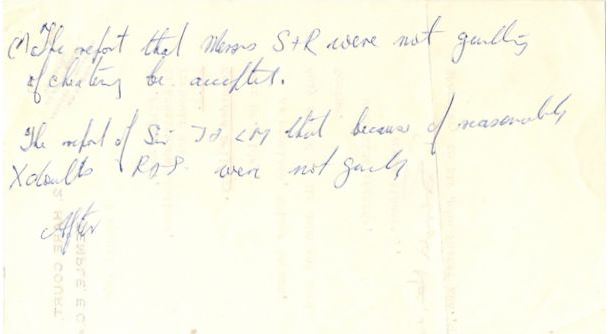 (1) The report that Messrs S+R were not guilty
of cheating be accepted.
The report of Sir J F & L M that because of reasonable
X doubts R & S were not guilty
After